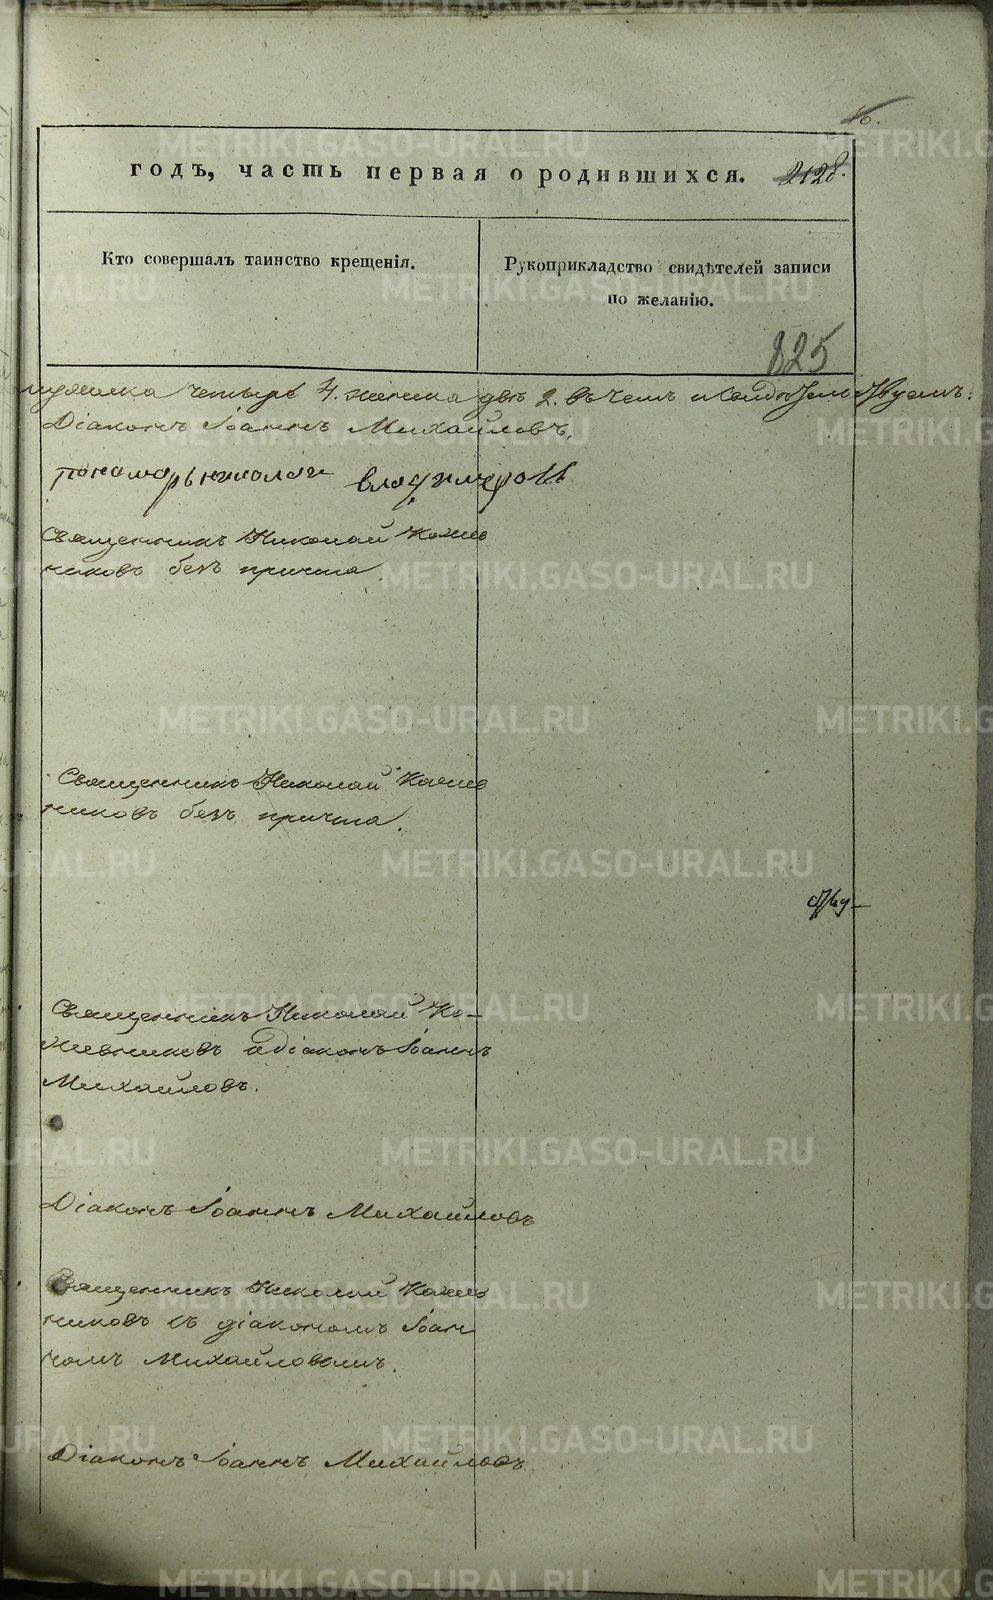 16.
годъ, часть первая о родившихся. 2128.
Кто совершалъ таинство крещенія.
Рукоприкладство свидѣтелей записи
по желанію.
825
мужеска четыре 4. женска двѣ 2. въ чемъ и свидѣтельствуемъ:
Діаконъ Іоаннъ Михайловъ.
пономарь николай владимеровъ
Священникъ Николай Кожев
никовъ безъ причта.
Священникъ Николай Кожев
никовъ безъ причта.
Священникъ Николай Ко-
жевниковъ и діаконъ Іоаннъ
Михайловъ.
Діаконъ Іоаннъ Михайловъ
Священникъ Николай Кожев
никовъ съ діакономъ Іоан
номъ Михайловымъ.
Діаконъ Іоаннъ Михайловъ.
METRIKI.GASO-URAL.RU